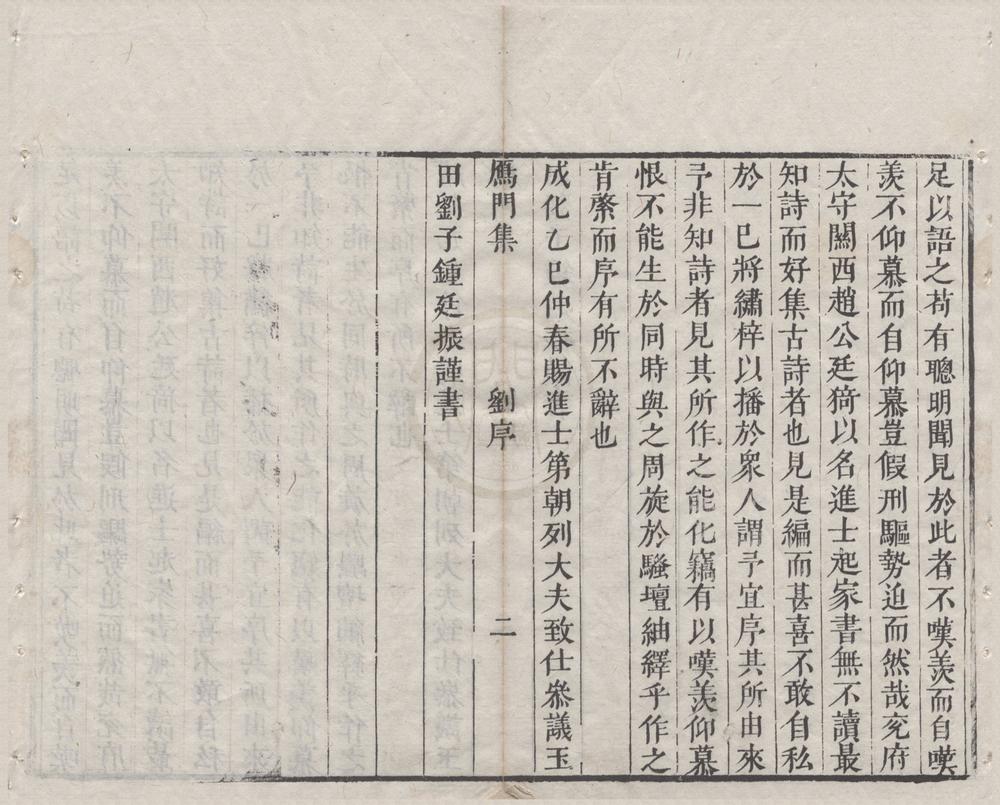 足以語之苟有聰明聞見於此者不嘆羡而自嘆
羡不仰慕而自仰慕豈假刑驅勢迫而然哉兖府
太守關西趙公廷猗以名進士起家書無不讀最
知詩而好集古詩者也見是編而甚喜不敢自私
於一已將繡梓以播於衆人謂予宜序其所由來
予非知詩者見其所作之能化竊有以嘆羡仰慕
恨不能生於同時與之周旋於騷壇紬繹乎作之
肯綮而序有所不辭也
成化乙巳仲春賜進士第朝列大夫致仕叅議玉
鴈門集 劉序 二
田劉子鍾廷振謹書